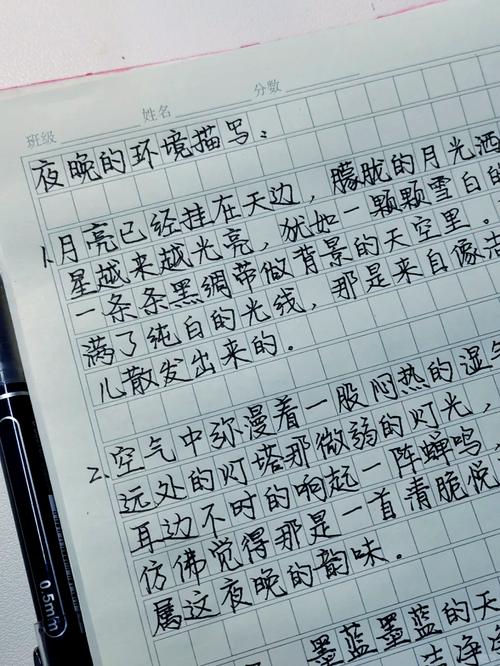 班级 姓名 分数
夜晚的环境描写：
1.月亮已经挂在天边，朦胧的月光洒
星越来越光亮，犹如一颗颗雪白的
一条条黑绸带做背景的天空里。
满了纯白的光线，那是来自像洁
儿散发出来的。
2.空气中弥漫着一股闷热的湿气
远处的灯塔那微弱的灯光，
耳边不时的响起一阵蝉鸣，
仿佛觉得那是一首清脆悦
属这夜晚的韵味。
墨蓝墨蓝的天
洁净
0.5mm